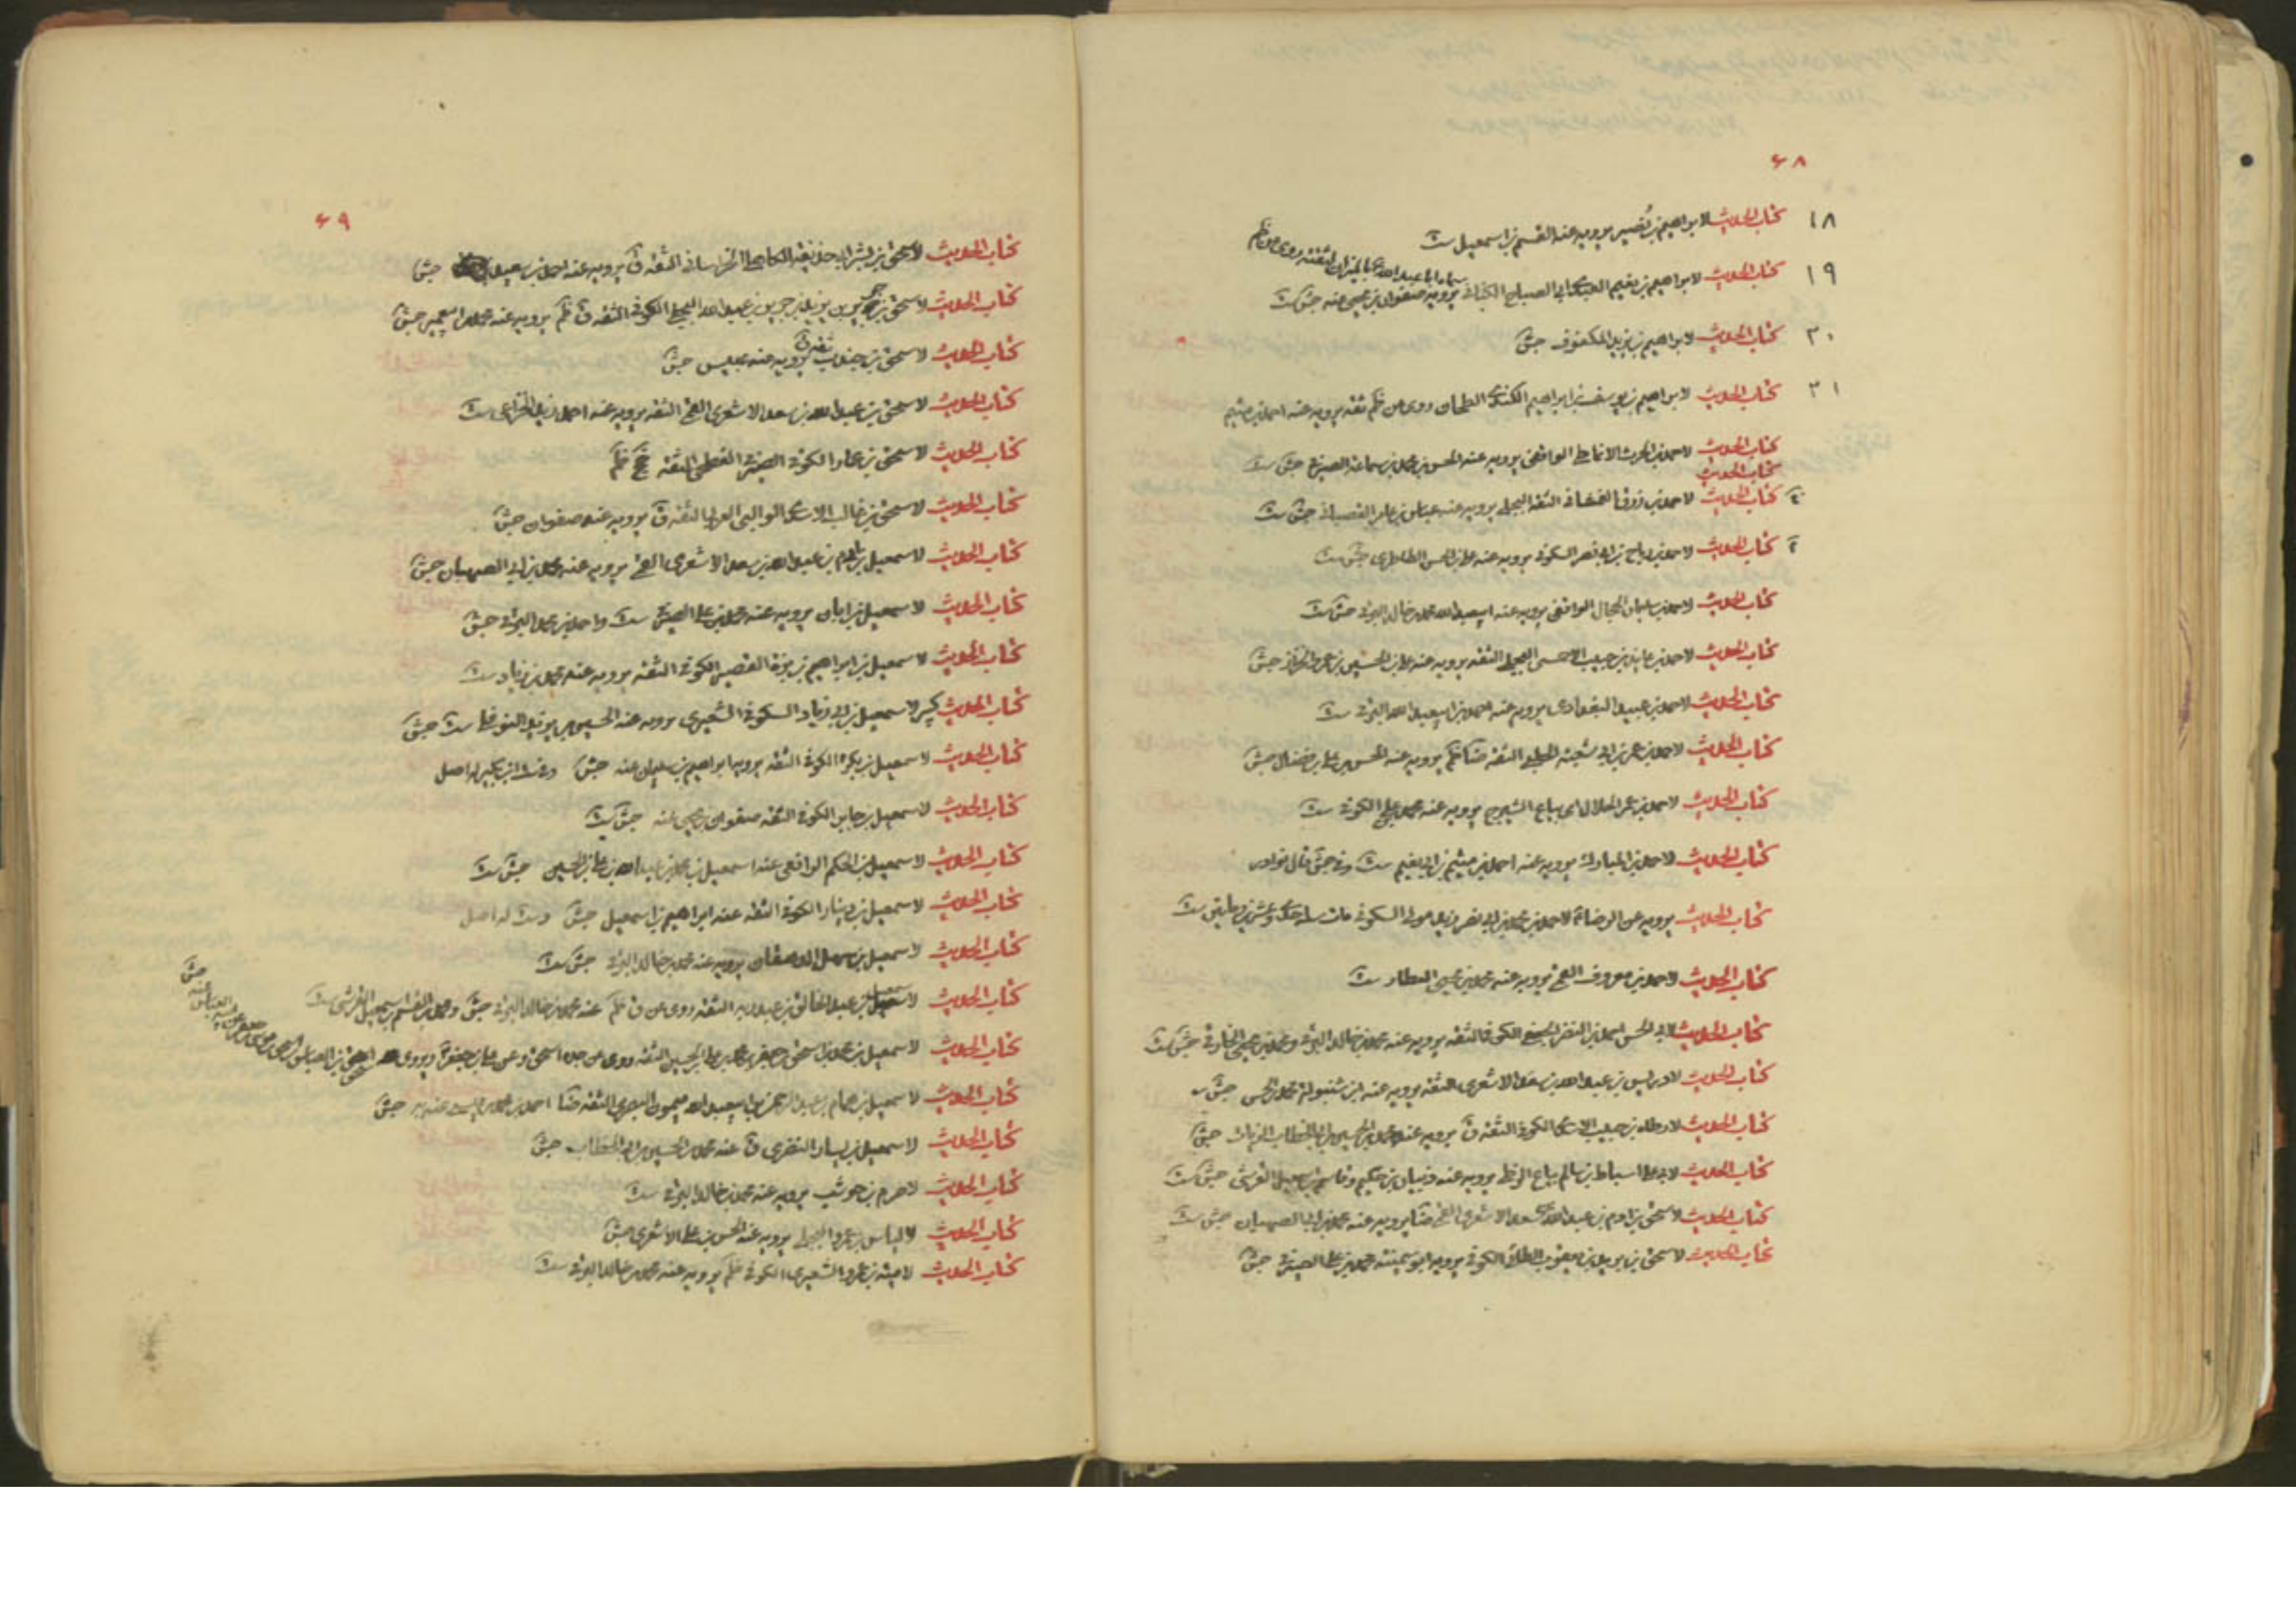 ۶۸
۱۸ كتاب الحديث لابراهيم بن نصير يرويه عنه القسم بن اسمعيل ست
۱۹ كتاب الحديث لابراهيم بن نعيم العبدى ابى الصباح الكنانى يرويه صفوان بن يحيى عنه جش ست
سماه ابا عبد الله بالميزان لثقته روى عن ظم
۲۰ كتاب الحديث لابراهيم بن يزيد المكفوف جش
۲۱ كتاب الحديث لابراهيم بن يوسف بن ابراهيم الكندى الطحان روى عن ظم ثقة يرويه عنه احمد بن ميثم
كتاب الحديث لاحمد بن الحرث الانماطى الواقفى يرويه عنه الحسن بن محمد بن سماعة الصيرفى جش ست
كتاب الحديث
كتاب الحديث لاحمد بن رزق الغمشانى الثقة البجلى يرويه عنه عباس بن عامر القصبانى جش ست
كتاب الحديث لاحمد بن رباح بن ابى نصر السكونى يرويه عنه على بن الحسن الطاطرى جش ست
كتاب الحديث لاحمد بن سليمان الحجال الواقفى يرويه عنه ابو عبد الله محمد بن خالد البرقى جش ست
كتاب الحديث لاحمد بن عايذ بن حبيب الاحمسى البجلى الثقة يرويه عنه على بن الحسين بن عمرو الخزاز جش
كتاب الحديث لاحمد بن عبيد البغدادى يرويه عنه احمد بن ابى عبد الله البرقى ست
كتاب الحديث لاحمد بن عمر بن ابى شعبة الحلبى الثقة ضا ظم يرويه عنه الحسن بن على بن فضال جش
كتاب الحديث لاحمد بن عمر الحلال اى بياع الشيرج يرويه عنه محمد بن على الكوفى ست
كتاب الحديث لاحمد بن المبارك يرويه عنه احمد بن ميثم بن ابى نعيم ست وفى جش قال نوادر
كتاب الحديث يرويه عن الرضا لاحمد بن محمد بن ابى نصر زيد مولى السكونى مات سنة احدى وعشرين ومائتين ست
كتاب الحديث لاحمد بن معروف القمى يرويه عنه محمد بن يحيى العطار ست
كتاب الحديث لابى الحسن احمد بن النضر الجعفى الكوفى الثقة يرويه عنه محمد بن خالد البرقى جش ست
كتاب الحديث لادريس بن عبد الله بن سعد الاشعرى الثقة يرويه عنه ابن شنبولة محمد بن الحسن جش
كتاب الحديث لارطاة بن حبيب الاسدى الكوفى الثقة ق يرويه عنه محمد بن الحسين بن ابى الخطاب الزيات جش
كتاب الحديث لابى على اسباط بن سالم بياع الزطى يرويه عنه ذبيان بن حكيم وقاسم بن اسمعيل القرشى جش ست
كتاب الحديث لاسحق بن ادم بن عبد الله بن سعد الاشعرى القمى ضا يرويه عنه محمد بن ابى الصهبان جش ست
كتاب الحديث لاسحق بن بريد بن يعقوب الطائى الكوفى يرويه ابو سمينة محمد بن على الصيرفى جش
۶۹
كتاب الحديث لاسحق بن بشر ابى حذيفة الكاهلى الخراسانى الثقة ق يرويه عنه احمد بن سعيد جش
كتاب الحديث لاسحق بن جرير بن يزيد بن جرير بن عبد الله البجلى الكوفى الثقة ق ظم يرويه عنه محمد بن ابى عمير جش
كتاب الحديث لاسحق بن جندب ثقة ق يرويه عنه عبيس جش
كتاب الحديث لاسحق بن عبد الله بن سعد الاشعرى القمى الثقة يرويه عنه احمد بن زيد الخزاعى ست
كتاب الحديث لاسحق بن عمار الكوفى الصيرفى الفطحى الثقة ظم
كتاب الحديث لاسحق بن غالب الاسدى الوالبى العربى الثقة ق يرويه عنه صفوان جش
كتاب الحديث لاسمعيل بن ادم بن عبد الله بن سعد الاشعرى القمى يرويه عنه محمد بن ابى الصهبان جش
كتاب الحديث لاسمعيل بن ابان يرويه عنه محمد بن على الصيرفى ست واحمد بن محمد البرقى جش
كتاب الحديث لاسمعيل بن ابراهيم بن بزة القصير الكوفى الثقة يرويه عنه محمد بن زياد ست
كتاب الحديث كبير لاسمعيل بن ابى زياد السكونى الشعيرى يرويه عنه الحسين بن يزيد النوفلى ست جش
كتاب الحديث لاسمعيل بن بكر الكوفى الثقة يرويها ابراهيم بن سليمان عنه جش وفى ست ابن بكير له اصل
كتاب الحديث لاسمعيل بن جابر الكوفى الثقة صفوان بن يحيى عنه جش ست
كتاب الحديث لاسمعيل بن الحكم الرافعى عنه اسمعيل بن محمد بن عبد الله بن على بن الحسين جش ست
كتاب الحديث لاسمعيل بن دينار الكوفى الثقة عنه ابراهيم بن اسمعيل جش وست له اصل
كتاب الحديث لاسمعيل بن سهل الدهقان يرويه عنه محمد بن خالد البرقى جش ست
كتاب الحديث لاسمعيل بن عبد الخالق بن عبد ربه الثقة روى عن ق ظم عنه محمد بن خالد البرقى جش والقسم بن اسمعيل القرشى ست
كتاب الحديث لاسمعيل بن محمد بن اسحق بن جعفر بن محمد بن على بن الحسين الثقة روى عن جده اسحق وعن على بن جعفر ويروى اسحق بن العباس جش
كتاب الحديث لاسمعيل بن همام بن عبد الرحمن بن ابى عبد الله ميمون البصرى الثقة ضا احمد بن محمد جش
كتاب الحديث لاسمعيل بن يسار النضرى ق عنه محمد بن الحسين بن ابى الخطاب جش
كتاب الحديث لاصرم بن حوشب يرويه عنه محمد بن خالد البرقى ست
كتاب الحديث لالياس بن عمرو البجلى يرويه عنه الحسن بن على الاشعرى جش
كتاب الحديث لامية بن عمرو الشعيرى الكوفى ظم يرويه عنه محمد بن خالد البرقى ست